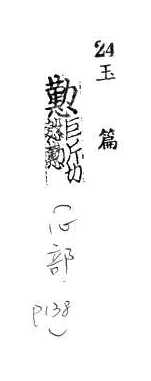 24
玉篇
懃 巨斤切
(心部
P138)